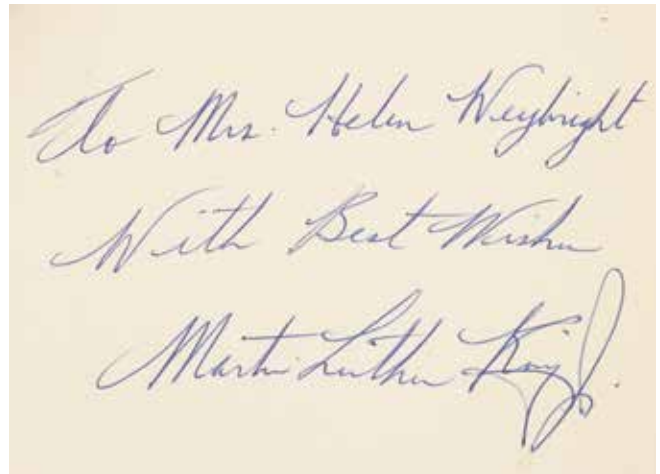 To Mrs. Helen Weybright
With Best Wishes
Martin Luther King Jr.